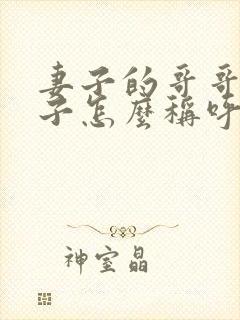 妻子的哥哥
子怎麼稱呼
神室晶